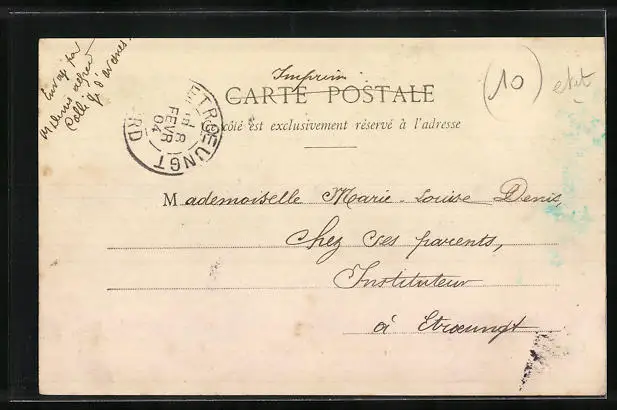 Envoyé par
Collège d'avesnes
Imprimé
CARTE POSTALE
côté est exclusivement réservé à l'adresse
ETROEUNGT
8
FEVR
04
RD
(10)
Mademoiselle Marie-Louise Denis,
Chez ses parents,
Instituteur
à Etroeungt